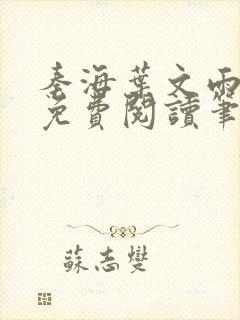 秦海葉文雨
免費閱讀筆
蘇志燮